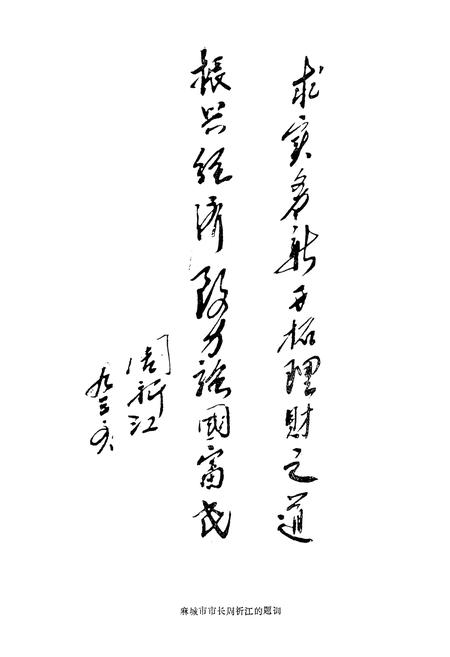 求实务新开拓理财之道
振兴经济致力强國富民
周析江
九三、六
麻城市市长周析江的题训